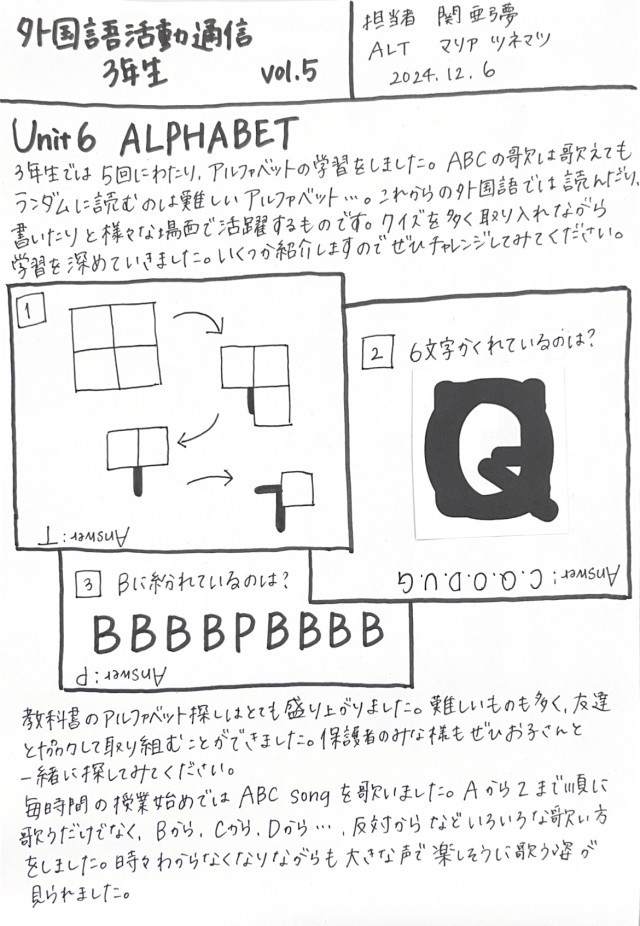 外国語活動通信
3年生 vol.5
担当者 関 亜弓夢
ALT マリア ツネマツ
2024.12.6
Unit 6 ALPHABET
3年生では5回にわたり、アルファベットの学習をしました。ABCの歌は歌えても
ランダムに読むのは難しいアルファベット…。これからの外国語では読んだり、
書いたりと様々な場面で活躍するものです。クイズを多く取り入れながら
学習を深めていきました。いくつか紹介しますのでぜひチャレンジしてみてください。
1
Answer: T
2 6文字かくれているのは?
Answer: C.Q.O.D.U.G
3 Bに紛れているのは?
BBBBPBBBB
Answer: P
教科書のアルファベット探しはとても盛り上がりました。難しいものも多く、友達
と協力して取り組むことができました。保護者のみな様もぜひお子さんと
一緒に探してみてください。
毎時間の授業始めではABC songを歌いました。AからZまで順に
歌うだけでなく、Bから、Cから、Dから…、反対からなどいろいろな歌い方
をしました。時々わからなくなりながらも大きな声で楽しそうに歌う姿が
見られました。